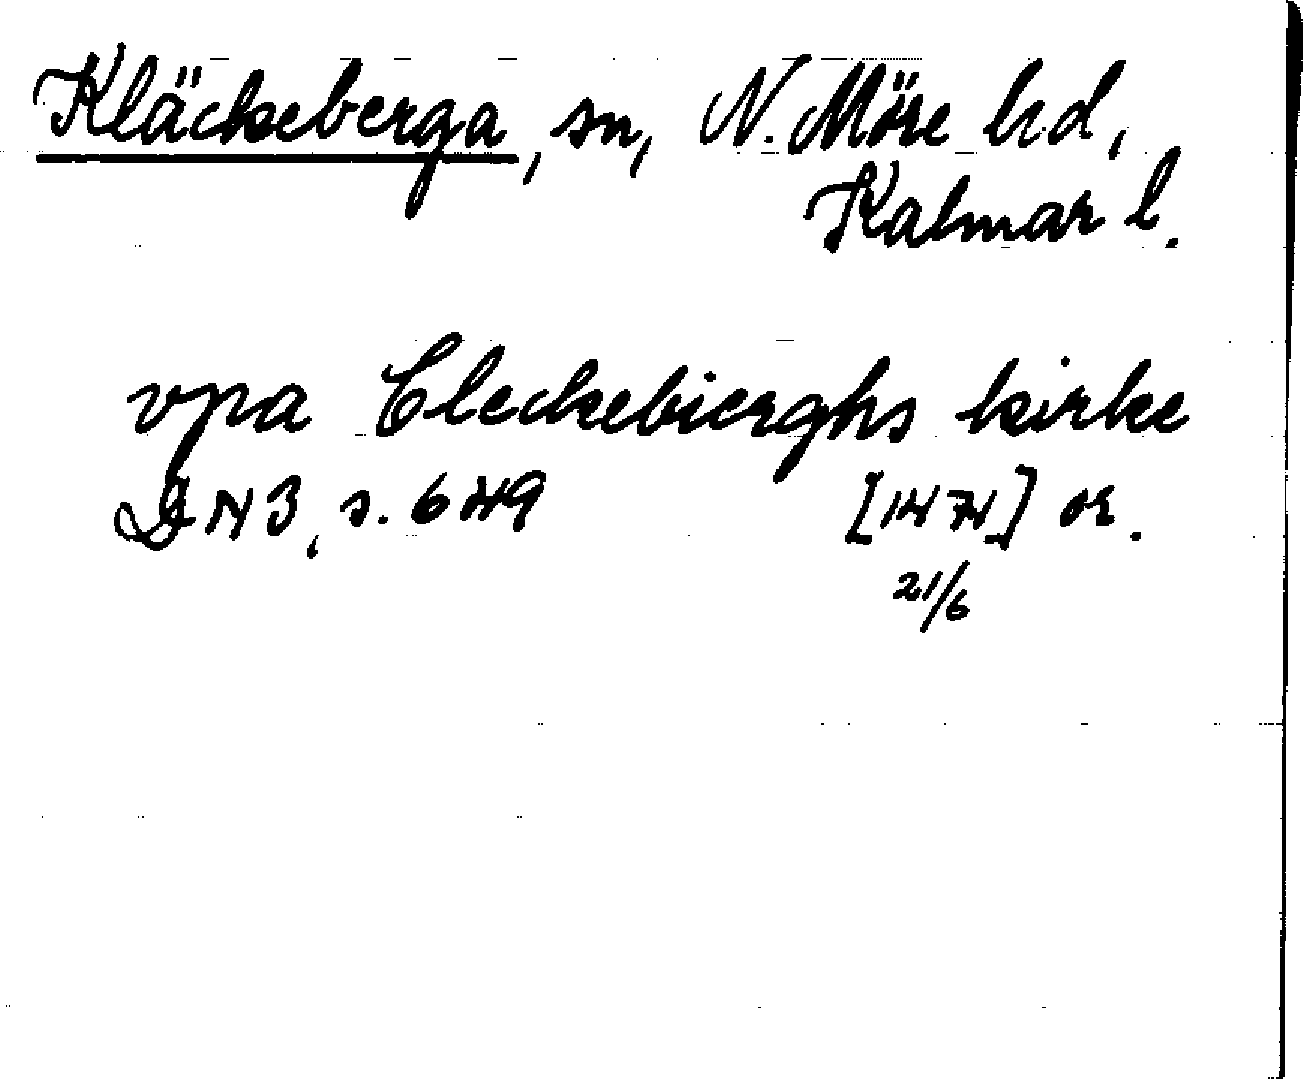 Kläckeberga, sn, N. Möre hd,
Kalmar l.
vpa Cleckebierghs kirke
DN 3, s. 649 [1474] or.
21/6